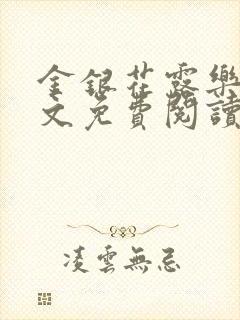 金銀花露樂
文免費閱讀
凌雲無忌